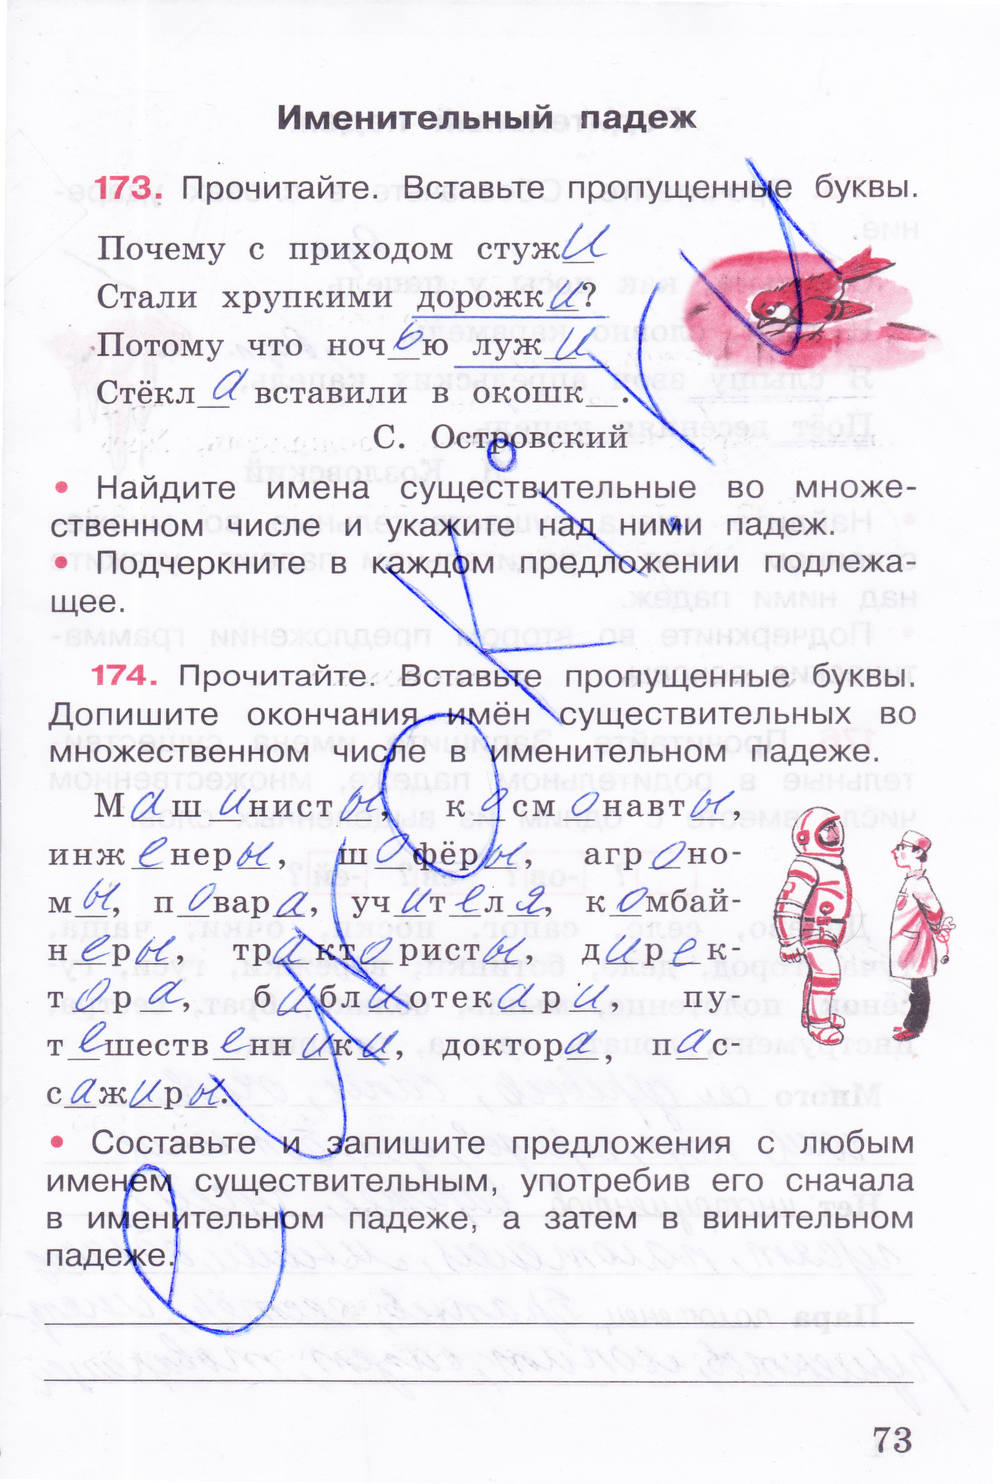 Именительный падеж
173. Прочитайте. Вставьте пропущенные буквы.
Почему с приходом стужи
Стали хрупкими дорожки?
Потому что ночью лужи
Стёкла вставили в окошк_.
С. Островский
• Найдите имена существительные во множе-
ственном числе и укажите над ними падеж.
• Подчеркните в каждом предложении подлежа-
щее.
174. Прочитайте. Вставьте пропущенные буквы.
Допишите окончания имён существительных во
множественном числе в именительном падеже.
Машинисты, космонавты,
инженеры, шофёры, агроно-
мы, повара, учителя, комбай-
неры, трактористы, дирек-
тора, библиотекари, пу-
тешественники, доктора, пас-
сажиры.
• Составьте и запишите предложения с любым
именем существительным, употребив его сначала
в именительном падеже, а затем в винительном
падеже.
73